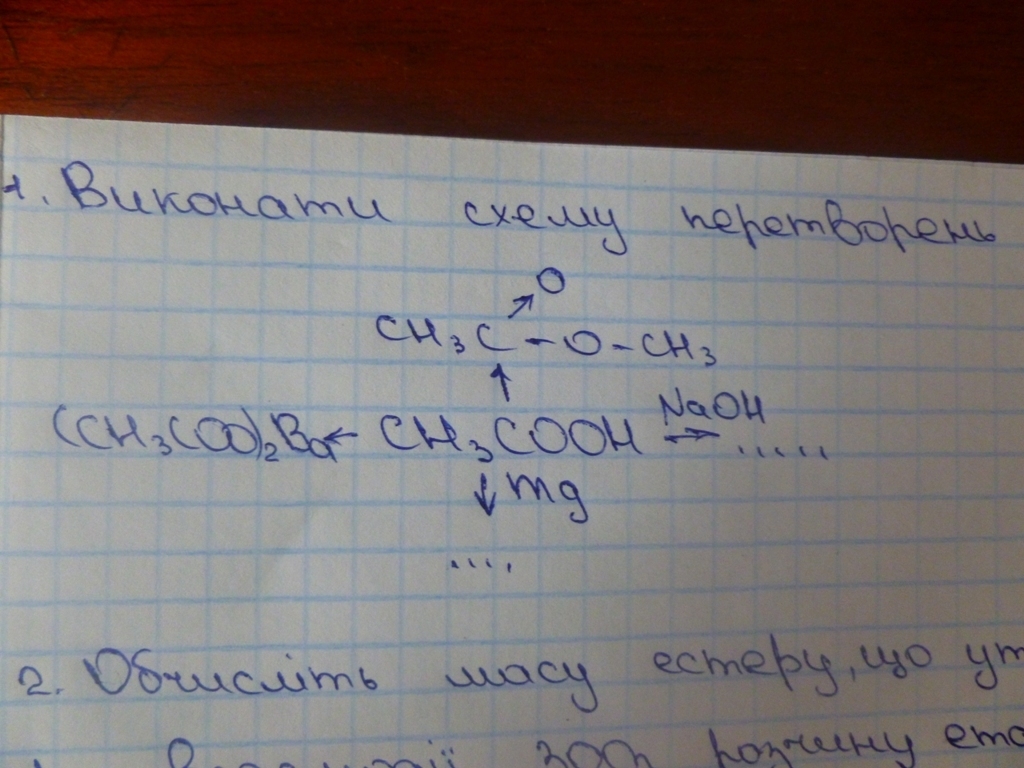 1. Виконати схему перетворень
O
CH₃C - O - CH₃
NaOH
(CH₃COO)₂Ba ← CH₃COOH → .....
↓ Mg
....
2. Обчисліть масу естеру, що ут
300г розчину ета